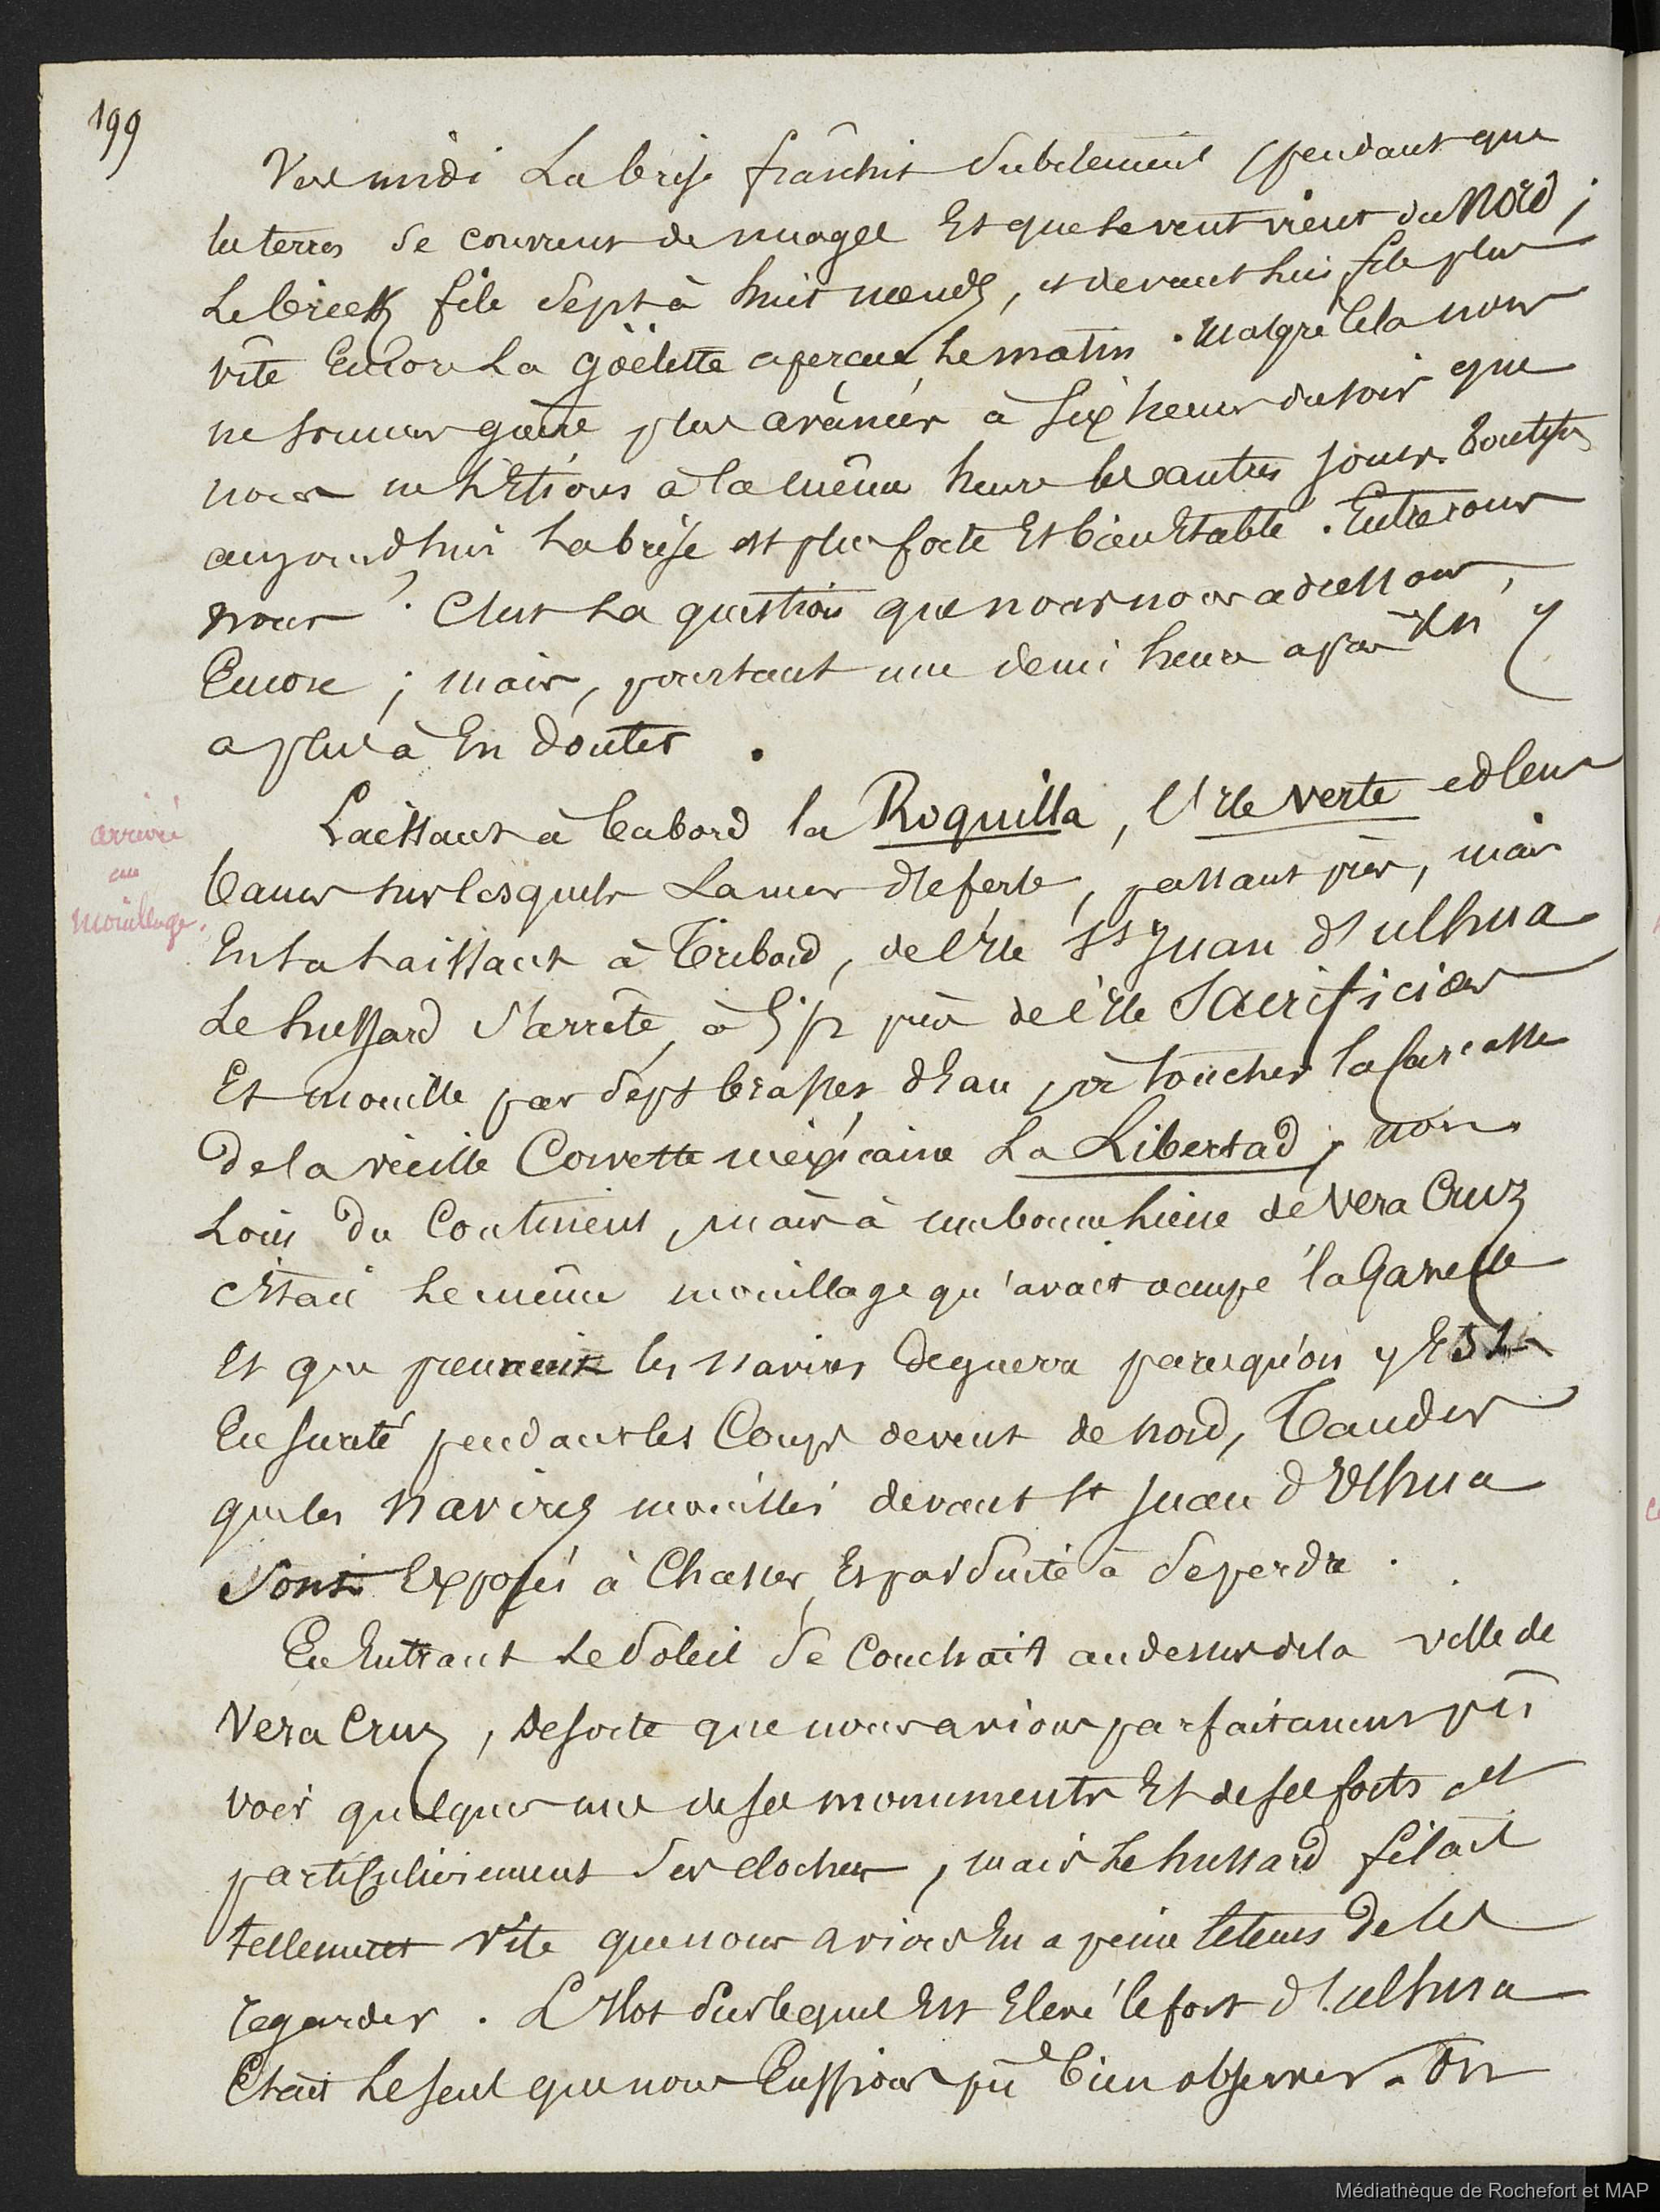 199
Vers midi La brise fraîchit subitement pendant que
les terres se couvrent de nuages Et que le vent vient du Nord ;
Le brick file sept à huit nœuds, et devant lui file plus
vîte Encore La goëlette aperçue le matin . Malgré Cela nous
ne sommes guère plus avancés à six heures du soir que
nous ne l'Etions à la même heure les autres jours. Toutefois
aujourd'hui la brise est plus forte Et bien Etablie . Entrerons
nous ? C'est La question que nous nous adressons,
Encore ; mais, pourtant une demi heure après Il n'y
a plus à En douter .
arrivée
au
mouillage.
Laissant à babord la Roquilla, l'Ile verte et leurs
bancs sur lesquels La mer déferle, passant près, mais
En la laissant à Tribord, de l'Ile St Juan d'ulhua
Le hussard s'arrête, à près de l'Ile Sacrificios
Et mouille par sept brasses d'Eau, à toucher la carcasse
De la vieille Corvette mexicaine La Libertad, non
Loin du Continent, mais à une bonne lieue de Vera Cruz
c'Etait le même mouillage qu'avait occupé la Gazelle
Et que prennent les navires de guerre parce qu'on y Est
En sureté pendant les Coups de vent de nord, Tandis
que les Navires mouillés devant St Juan d'Ulhua
sont Exposés à Chasser Et par suite à se perdre .
En Entrant le Soleil se Couchait au dessus de la ville de
Vera Cruz, de sorte que nous avions parfaitement pû
voir quelques uns de ses monuments Et de ses forts et
particulièrement ses clochers, mais le hussard filait
tellement vîte que nous avions Eu a peine le tems de les
regarder . L'Ilot sur lequel Est Elevé le fort d'ulhua
Etait le seul que nous Eussions pû bien observer. On
Médiathèque de Rochefort et MAP